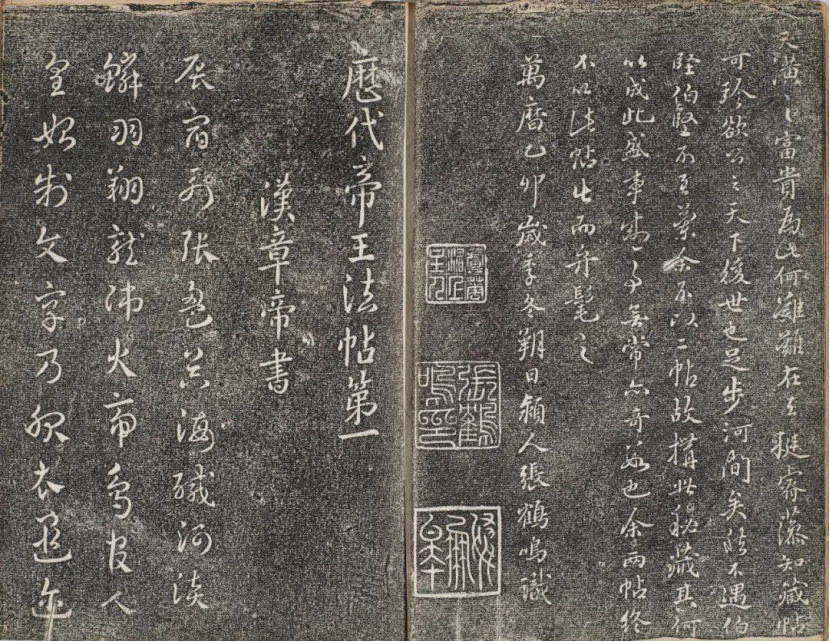 天潢之富貴為此何難難在挺睿藻知藏帖
可珍欲公之天下後世也足步河間矣然不遇伯
堅伯堅不有余不以二帖故搆此秘藏其何
以成此盛事事無常亦奇也余兩帖終
不以法帖而弁髦之
萬曆乙卯歲季冬朔日潁人張鶴鳴識
張鶴鳴印
歷代帝王法帖第一
漢章帝書
辰宿列張盈昃海醎河淡
鱗羽翔龍師火帝鳥官人
皇始制文字乃服衣遐迩